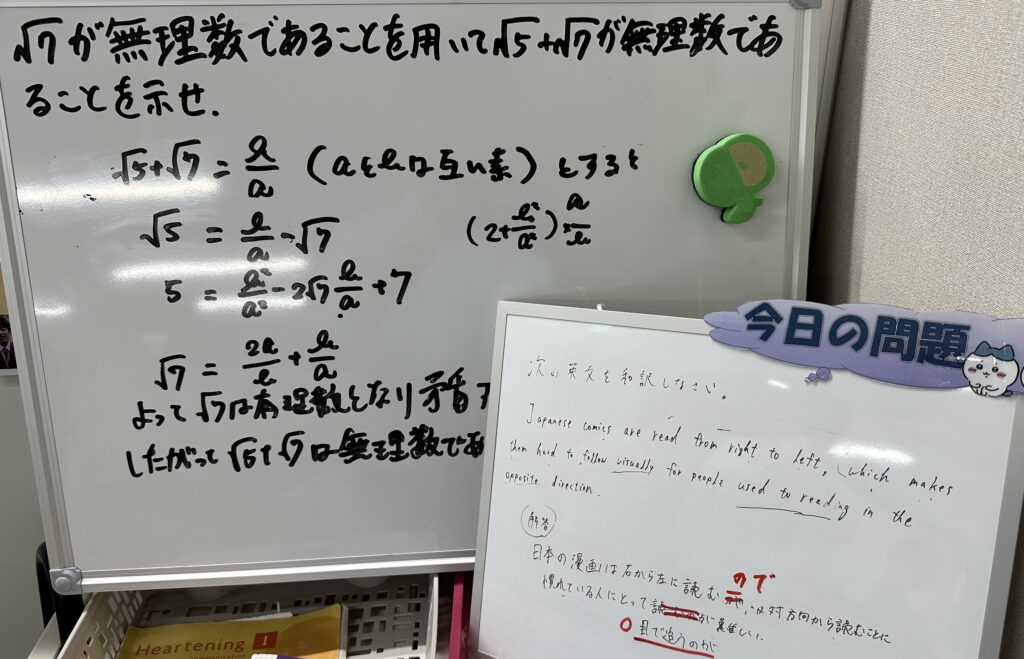 √7が無理数であることを用いて√5+√7が無理数であ
ることを示せ.
√5+√7 = b/a (aとbは互い素)とすると
√5 = b/a - √7
(2+b²/a²)×a/b
5 = b²/a² - 2√7 b/a + 7
√7 = 2a/b + b/a
よって√7は有理数となり矛盾
したがって√5+√7は無理数であ
今日の問題
次の英文を和訳しなさい。
Japanese comics are read from right to left, (which makes
them hard to follow visually for people used to reading in the
opposite direction.
解答
日本の漫画は右から左に読む ので 反対方向から読むことに
慣れている人にとって 難しい。
目で追うのが
Heartening I